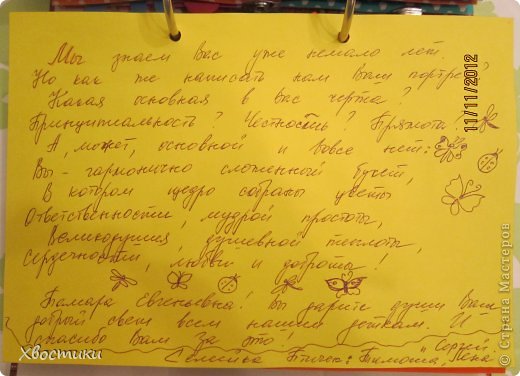 Мы знаем Вас уже немало лет
Но как же написать нам Ваш портрет?
Какая основная в Вас черта?
Принципиальность? Честность? Прямота?
А, может, основной и вовсе нет:
Вы - гармонично сложенный букет,
В котором щедро собраны цветы
Ответственности, мудрой простоты,
Великодушия, душевной теплоты,
Сердечности, любви и доброты!
Тамара Евгеньевна! Вы дарите души Вашей
добрый свет всем нашим деткам. И
спасибо Вам за это!
Семейка Птичек: Тимоша, Сергей,
Лена
11/11/2012
Хвостики
© Страна Мастеров